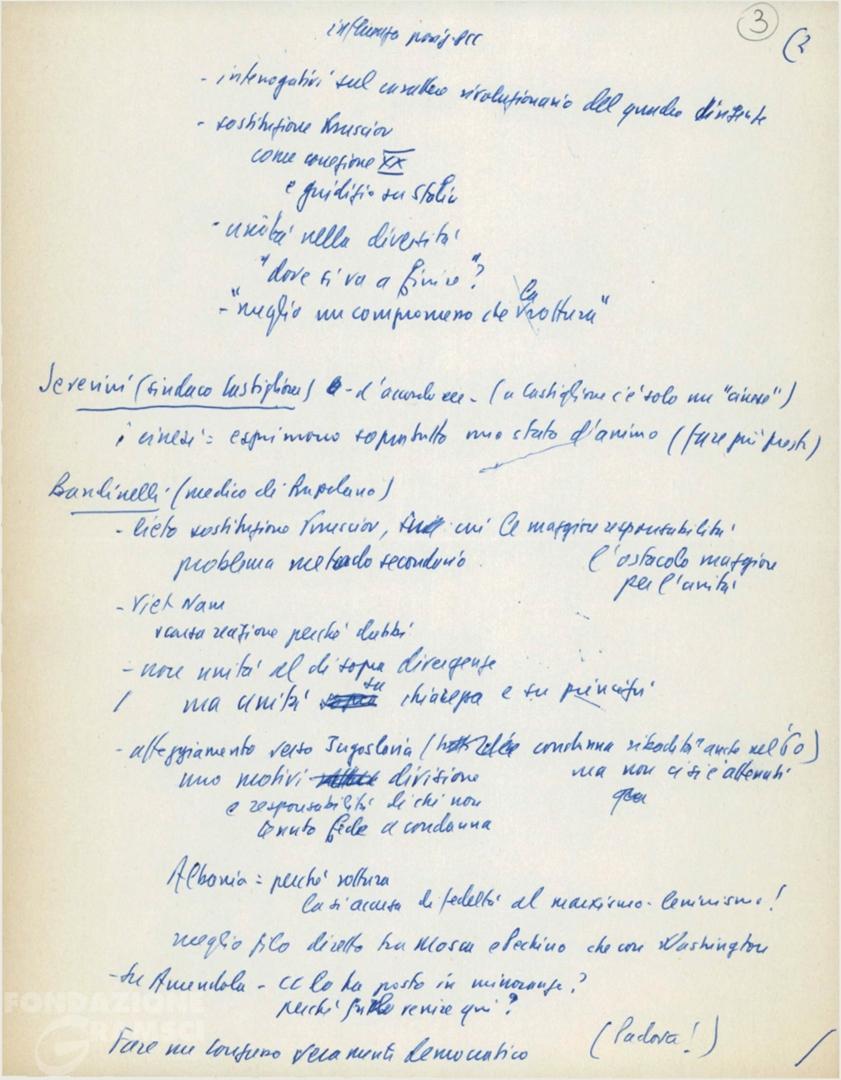 3
(2
influenza posiz. PCC
- interrogativi sul carattere rivoluzionario del quadro dirigente
- sostituzione Krusciov
come correzione XX
e giudizio su Stalin
- unità nella diversità
"dove si va a finire"?
- "meglio un compromesso che la rottura"
Severini (sindaco Castiglione) - d'accordo - (a Castiglione c'è solo un "cinese")
i cinesi = esprimono soprattutto uno stato d'animo (fare più presti)
Bandinelli (medico di Rapolano)
- lieto sostituzione Krusciov, cui la maggiore responsabilità
problema metodo secondario
l'ostacolo maggiore
per l'unità
- Viet Nam
scarsa reazione perché dubbi
- non unità al di sopra divergenze
ma unità su chiarezza e su principii
- atteggiamento verso Jugoslavia ( condanna ribadita anche nel '60)
uno motivi divisione
ma non ci si è attenuti
e responsabilità di chi non
tenuto fede a condanna
Albania = perché rottura
la si accusa di fedeltà al marxismo-leninismo!
meglio filo diretto tra Mosca e Pechino che con Washington
- su Amendola - CC lo ha posto in minoranza?
perché venire qui?
(Padova!)
Fare un congresso veramente democratico
FONDAZIONE
GRAMSCI